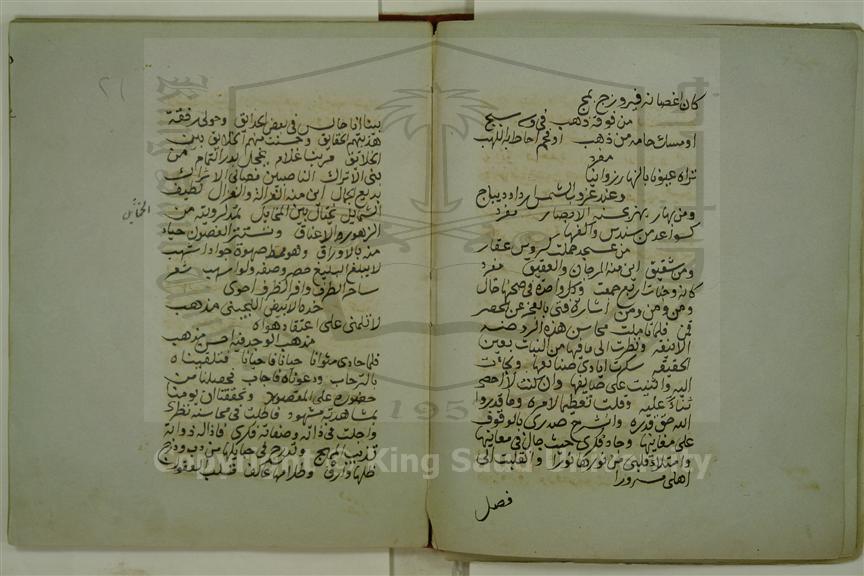 كان اغصانه فيروزج بهج
من فوقه ذهب في وسبج
او مسك حامه من ذهب او فحم احاط به اللهب
مفرد
تراه عيونا بالنهار روانيا
وعند غروب الشمس ازرار ديباج
ومن بهار يهز حسنه الابصار مفرد
كسواعد من سندس واكفها
من عسجد حملت كؤس عقار
ومن شقيق اين منه المرجان والعقيق مفرد
كانه وجنات اربع جمعت وكل واحدة في صحنها خال
ومن ومن ومن مع اشارة فتى بالعجز عن الحصر
قمن فلما تاملت محاسن هذه الروضة
الانيقة ونظرت الى ما فيها من النبات بعين
الحقيقة سكرت ايادي صنايعها ولجات
اليه واثنيت على صانعها وان كنت لا احصي
ثناء عليه وقلت تعظيما لامره وما قدروا
الله حق قدره وانشرح صدري بالوقوف
على معانيها وجاد فكري حيث جال في معانيها
وامتلا قلبي من نورها نورا وانقلبت الى
اهلي مسرورا
فصل
بينا انا جالس في بعض الحدايق وحولي رفقة
هذبتهم الحقايق وحسنت منهم الخلايق بين
الخلايق مر بنا غلام يخجل بدر التمام من
بني الاتراك الناصبين فصائي الاشراك
بديع الجمال اين منه الغزالة والغزال لطيف
الشمايل يختال بين الخمايل تمتد لرويته من
الزهور الاعناق وتستتر الغصون حياء
منه بالاوراق وهو ممتط صهوة جواد اشهب
لا يبلغ البليغ حصر وصفه ولو اسهب شعر
ساحر الطرف وافر الظرف احوى
خده الابيض اللجيني مذهب
لا تلمني على اعتقاد هواه
مذهب الوجد فيه احسن مذهب
فلما حاذى مثوانا حيانا فاحيانا فتلقيناه
بالترحاب ودعوناه فاجاب فحصلنا من
حضوره على المقصود وتحققنا ان يومنا
بمشاهدته مشهود فاطلت في محاسنه نظري
واجلت في ذاته وصفاته فكري فاذا له ذوابة
تذيب المهج وتدرج في حبايلها من دب ودرج
ظلها وارف وظلامها عاكف قلب المفتون
الخمايل